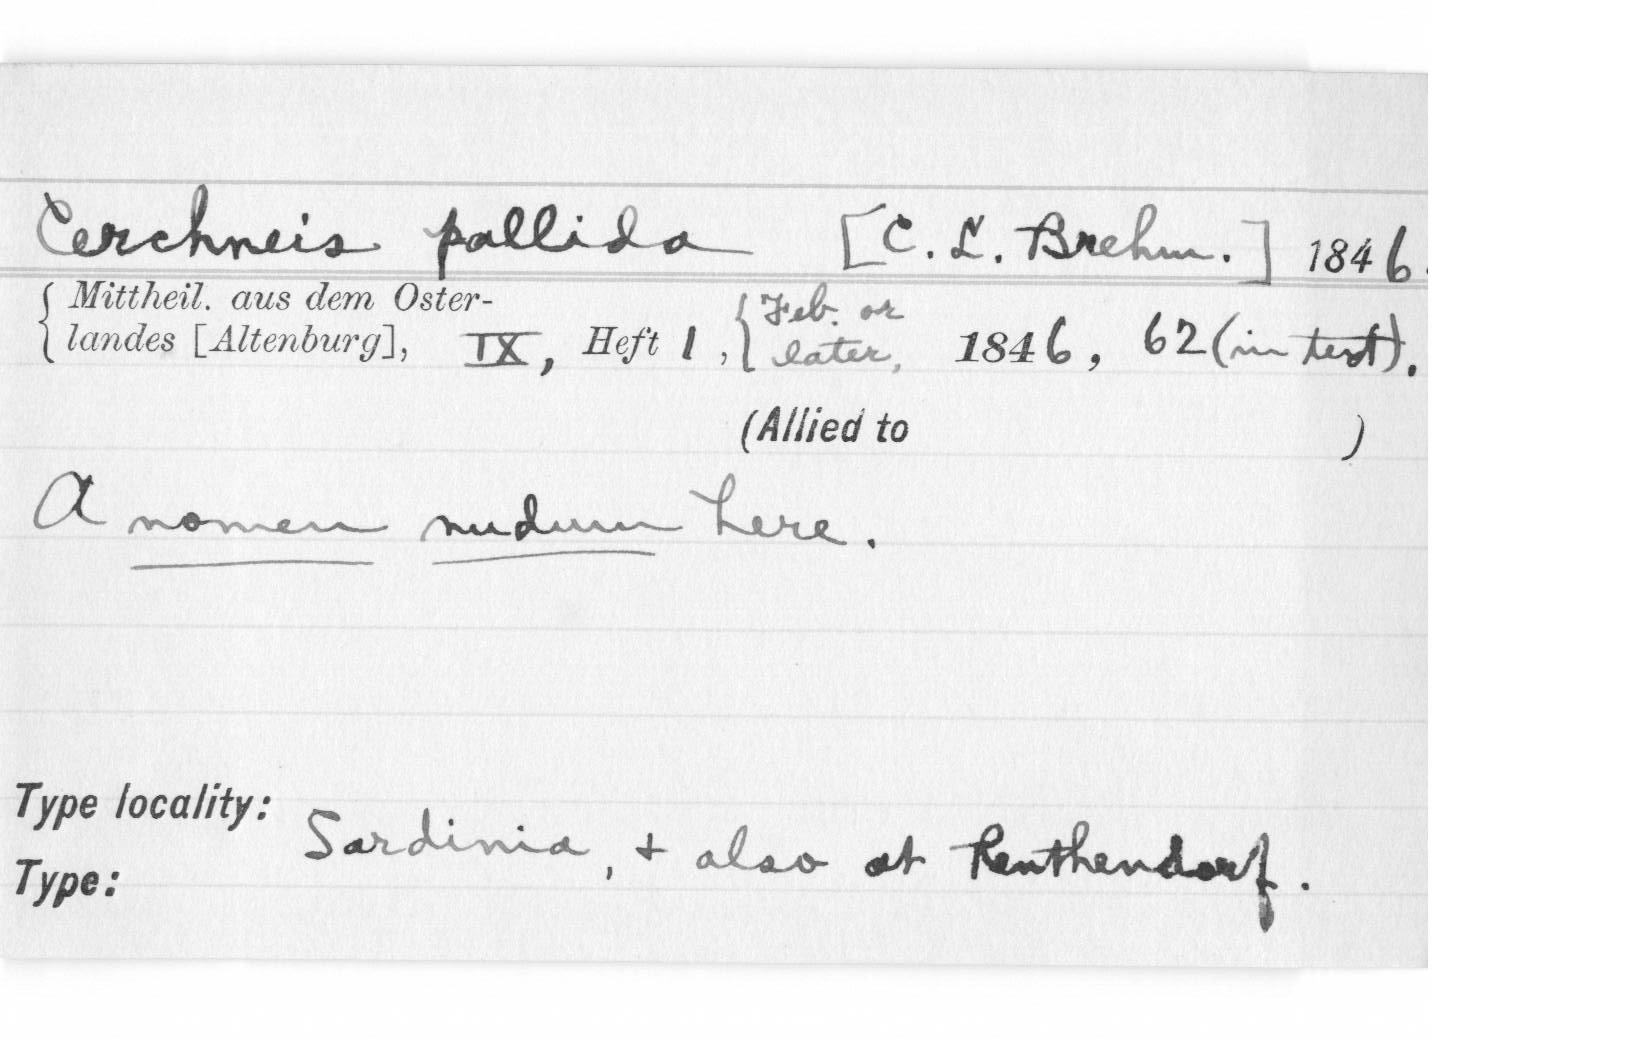 Cerchneis pallida [C. L. Brehm.] 1846.
{ Mittheil. aus dem Oster-
landes [Altenburg], IX, Heft 1, { Feb. or later, 1846, 62 (in text).
(Allied to )
A nomen nudum here.
Type locality: Sardinia, + also at Renthendorf.
Type: